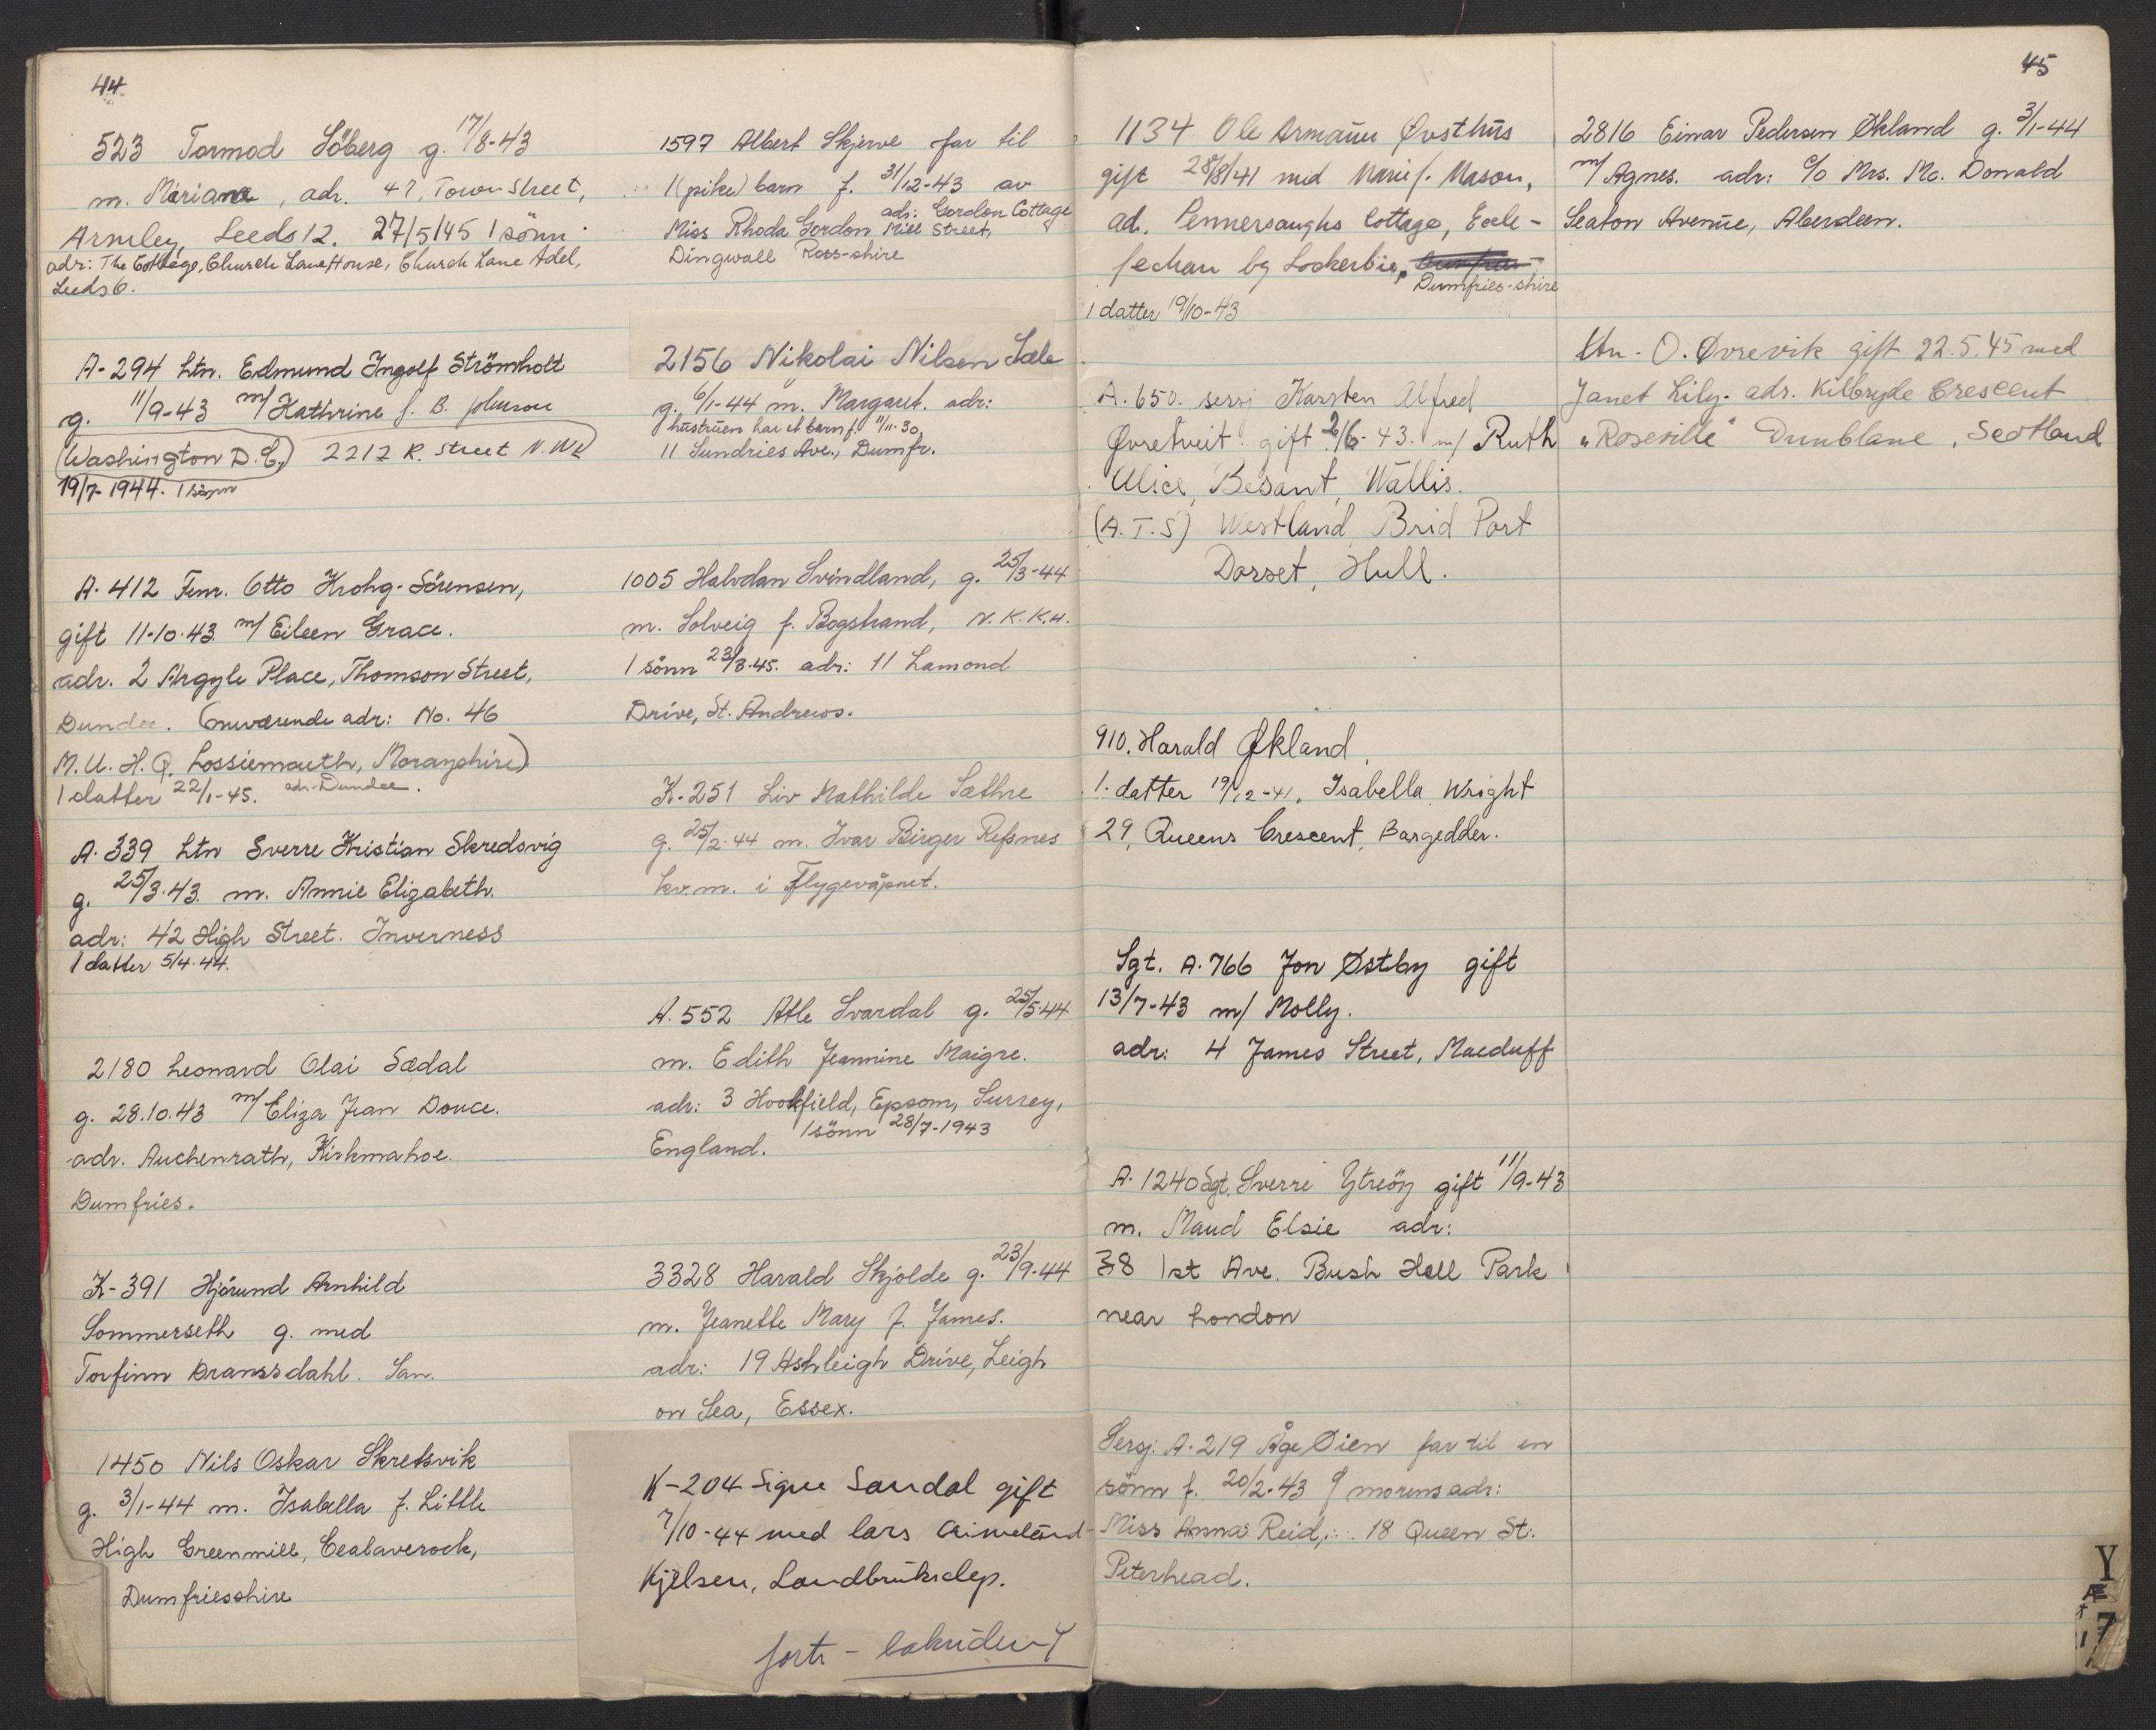 44
523 Tormod Söberg g. 17/8-43
m. Mariana, adr. 47, Town Street,
Armley, Leeds 12. 27/5/45 1 sönn
adr: The Cottage, Church Lane House, Church Lane Adel,
Leeds 6.
A-294 Ltn. Edmund Ingolf Strömholt
g. 11/9-43 m/ Kathrine f. B. Johnson
(Washington D.C.) 2212 R. Street N.W.
19/7-1944. 1 sönn
A-412 Fenr. Otto Krohg-Sörensen,
gift 11-10-43 m/ Eileen Grace.
adr. 2 Argyle Place, Thomson Street,
Dundee. (nuværende adr: No. 46
M.U. H.Q. Lossiemouth, Morayshire)
1 datter 22/1-45. adr. Dundee.
A. 339 Ltn Sverre Kristian Skredsvig
g. 25/3.43. m. Annie Elizabeth.
adr: 42 High Street. Inverness
1 datter 5/4.44.
2180 Leonard Olai Sædal
g. 28.10.43 m/ Eliza Jean Douce.
adr. Auchenrath, Kirkmahoe.
Dumfries.
K-391 Hjörund Arnhild
Sommerseth g. med
Torfinn Dranssdahl. San.
1450 Nils Oskar Skretsvik
g. 3/1-44 m. Isabella f. Little
High Greenmill, Cealaverock,
Dumfriesshire
1597 Albert Skjerve far til
1 (pike) barn f. 31/12-43 av
Miss Rhoda Gordon adr: Gordon Cottage Mill Street,
Dingwall Ross-shire
2156 Nikolai Nilsen Sæle
g. 6/1-44 m. Margaret. adr:
hustruen har et barn f. 11/11-30,
11 Sundries Ave., Dumfr.
1005 Halvdan Svindland, g. 25/3-44
m. Solveig f. Bogstrand, N.K.K.H.
1 sönn 23/3.45. adr: 11 Lamond
Drive, St. Andrews.
K-251 Liv Mathilde Sæthre
g. 25/2.44 m. Ivar Birger Refsnes
kv.m. i Flygevåpnet.
A. 552 Atle Svardal g. 25/5.44
m. Edith Jeannine Maigre.
adr: 3 Hookfield, Epsom, Surrey,
England. 1 sönn 28/7-1943
3328 Harald Skjolde g. 23/9-44
m. Jeanette Mary f. James.
adr: 19 Ashleigh Drive, Leigh
on Sea, Essex.
K-204 Signe Sandal gift
7/10-44 med Lars
Kjelsen, Landbruksdep.
forts -
45
1134 Ole Armann Øvsthus
gift 28/8/41 med Marie f. Mason,
ad. Pennersaughs Cottage, Eccle-
fechan by Lockerbie,
Dumfries-shire
1 datter 19/10-43
A. 650. sersj Karsten Alfred
Øvretveit. gift 2/6-43. m/ Ruth
Alice, Besant, Wallis.
(A.T.S) Westland, Brid Port
Dorset, Hull.
910. Harald Økland,
1. datter 19/12-41, Isabella Wright
29, Queens Crescent, Bargedder.
Sgt. A.766 Jon Østby gift
13/7-43 m/ Molly.
adr: 4 James Street, Macduff
A. 1240 Sgt. Sverre Ytreöy gift 11/9-43
m. Maud Elsie adr:
38 1st Ave. Bush Hell Park
near London
Sersj. A.219 Åge Øien far til en
sönn f. 20/2-43 morens adr:
Miss Anna Reid, 18 Queen St.
Peterhead.
2816 Einar Pedersen Økland g. 3/1-44
m/ Agnes. adr: c/o Mrs. Mc. Donald
Seaton Avenue, Aberdeen.
Ltn. O. Øvrevik gift 22.5.45 med
Janet Lily. adr. Kilbryde Crescent
"Roseville" Dunblane, Scotland
Y
Æ